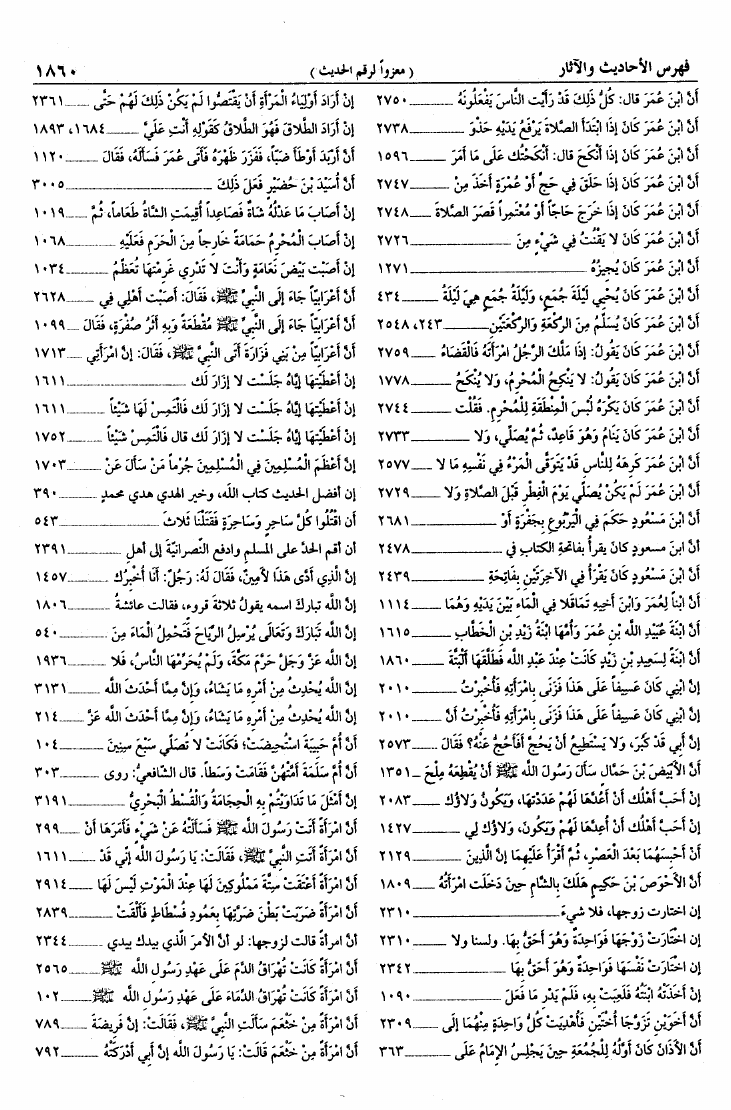 فهرس الأحاديث والآثار
( معزواً لرقم الحديث )
١٨٦٠
أَنَّ ابْنَ عُمَرَ قال: كُلُّ ذَلِكَ قَدْ رَأَيت النَّاسَ يَفْعَلُونَهُ ٢٧٥٠
أَنَّ ابْنَ عُمَرَ كَانَ إذَا ابْتَدَأَ الصَّلاةَ يَرْفَعُ يَدَيْهِ حَذْوَ ٢٧٣٨
أَنَّ ابْنَ عُمَرَ كَانَ إذَا أَنْكَحَ قال: أَنْكَحْتُك عَلَى مَا أَمَرَ ١٥٩٦
أَنَّ ابْنَ عُمَرَ كَانَ إذَا حَلَقَ فِي حَجٍّ أَوْ عُمْرَةٍ أَخَذَ مِنْ ٢٧٤٧
أَنَّ ابْنَ عُمَرَ كَانَ إذَا خَرَجَ حَاجّاً أَوْ مُعْتَمِراً قَصَرَ الصَّلاةَ ٢٧٤٨
أَنَّ ابْنَ عُمَرَ كَانَ لا يَقْنُتُ فِي شَيْءٍ مِنَ ٢٧٢٦
أَنَّ ابْنَ عُمَرَ كَانَ يُجِيزُهُ ١٢٧١
أَنَّ ابْنَ عُمَرَ كَانَ يُحْيِي لَيْلَةَ جَمْعٍ، وَلَيْلَةُ جَمْعٍ هِيَ لَيْلَةُ ٤٣٤
أَنَّ ابْنَ عُمَرَ كَانَ يُسَلِّمُ مِنَ الرَّكْعَةِ وَالرَّكْعَتَيْنِ ٢٤٣، ٢٥٤٨
أَنَّ ابْنَ عُمَرَ كَانَ يَقُولُ: إذَا مَلَّكَ الرَّجُلُ امْرَأَتَهُ فَالْقَضَاءُ ٢٧٥٩
أَنَّ ابْنَ عُمَرَ كَانَ يَقُولُ: لا يَنْكِحُ الْمُحْرِمُ، وَلا يُنْكِحُ ١٧٧٨
أَنَّ ابْنَ عُمَرَ كَانَ يَكْرَهُ لُبْسَ الْمِنْطَقَةِ لِلْمُحْرِمِ. فَقُلْت ٢٧٤٤
أَنَّ ابْنَ عُمَرَ كَانَ يَنَامُ وَهُوَ قَاعِدٌ، ثُمَّ يُصَلِّي، وَلا ٢٧٣٣
أَنَّ ابْنَ عُمَرَ كَرِهَهُ لِلنَّاسِ قَدْ يَتَوَقَّى الْمَرْءُ فِي نَفْسِهِ مَا لا ٢٥٧٧
أَنَّ ابْنَ عُمَرَ لَمْ يَكُنْ يُصَلِّي يَوْمَ الْفِطْرِ قَبْلَ الصَّلاةِ وَلا ٢٧٢٩
أَنَّ ابْنَ مَسْعُودٍ حَكَمَ فِي الْيَرْبُوعِ بِجَفْرَةٍ أَوْ ٢٦٨١
أَنَّ ابنَ مسعودٍ كانَ يقرأُ بفاتحةِ الكتابِ في ٢٤٧٨
أَنَّ ابْنَ مَسْعُودٍ كَانَ يَقْرَأُ فِي الآخِرَتَيْنِ بِفَاتِحَةِ ٢٤٣٩
أَنَّ ابْناً لِعُمَرَ وَابْنَ أَخِيهِ تَمَاقَلا فِي الْمَاءِ بَيْنَ يَدَيْهِ وَهُمَا ١١١٤
أَنَّ ابْنَةَ عُبَيْدِ اللَّهِ بْنِ عُمَرَ وَأُمُّهَا ابْنَةُ زَيْدِ بْنِ الْخَطَّابِ ١٦١٥
أَنَّ ابْنَةً لِسَعِيدِ بْنِ زَيْدٍ كَانَتْ عِنْدَ عَبْدِ اللَّهِ فَطَلَّقَهَا الْبَتَّةَ ١٨٦٠
إنَّ ابْنِي كَانَ عَسِيفاً عَلَى هَذَا فَزَنَى بِامْرَأَتِهِ فَأُخْبِرْتُ ٢٠١٠
إنَّ ابْنِي كَانَ عَسِيفاً عَلَى هَذَا فَزَنَى بِامْرَأَتِهِ فَأُخْبِرْتُ أَنَّ ٢٠١٠
إنَّ أَبِي قَدْ كَبُرَ، وَلا يَسْتَطِيعُ أَنْ يَحُجَّ أَفَأَحُجُّ عَنْهُ؟ فَقَالَ ٢٥٧٣
أَنَّ الأَبْيَضَ بْنَ حَمَّالٍ سَأَلَ رَسُولَ اللَّهِ ﷺ أَنْ يُقْطِعَهُ مِلْحَ ١٣٥١
إن أَحَبَّ أَهْلُك أَنْ أَعُدَّهَا لَهُمْ عَدَدْتهَا، وَيَكُونُ وَلاؤُك ٢٠٨٣
إن أَحَبَّ أَهْلُك أَنْ أُعِدَّهَا لَهُمْ وَيَكُونَ، وَلاؤُك لِي ١٤٢٧
أَنْ أَحْبِسْهُمَا بَعْدَ الْعَصْرِ، ثُمَّ أَقْرَأْ عَلَيْهِمَا إنَّ الَّذِينَ ٢١٢٩
أَنَّ الأَحْوَصَ بْنَ حَكِيمٍ هَلَكَ بِالشَّامِ حِينَ دَخَلَت امْرَأَتُهُ ١٨٠٩
إن اختارت زوجها، فلا شيءَ ٢٣١٠
إن اخْتَارَتْ زَوْجَهَا فَوَاحِدَةٌ وَهُوَ أَحَقُّ بِهَا. ولسنا ولا ٢٣١٠
إن اخْتَارَتْ نَفْسَهَا فَوَاحِدَةٌ وَهُوَ أَحَقُّ بِهَا ٢٣٤٢
إنْ أَخَذَتْهُ ابْنَتُهُ فَلَعِبَتْ بِهِ، فَلَمْ يَدْرِ مَا فَعَلَ ١٠٩٠
أَنَّ أَخَوَيْنِ تَزَوَّجَا أُخْتَيْنِ فَأُهْدِيَتْ كُلُّ وَاحِدَةٍ مِنْهُمَا إلَى ٢٣٠٩
أَنَّ الأَذَانَ كَانَ أَوَّلُهُ لِلْجُمُعَةِ حِينَ يَجْلِسُ الإِمَامُ عَلَى ٣٦٣
إنْ أَرَادَ أَوْلِيَاءُ الْمَرْأَةِ أَنْ يَقْتَصُّوا لَمْ يَكُنْ ذَلِكَ لَهُمْ حَتَّى ٢٣٦١
إنْ أَرَادَ الطَّلاقَ فَهُوَ الطَّلاقُ كَقَوْلِهِ أَنْتِ عَلَيَّ ١٦٨٤، ١٨٩٣
أَنَّ أَرْبَدَ أَوْطَأَ ضَبّاً، فَفَزَرَ ظَهْرَهُ فَأَتَى عُمَرَ فَسَأَلَهُ، فَقَالَ ١١٢٠
أَنَّ أُسَيْدَ بْنَ حُضَيْرٍ فَعَلَ ذَلِكَ ٣٠٠٥
إنْ أَصَابَ مَا عَدْلُهُ شَاةٌ فَصَاعِداً أُقِيمَتِ الشَّاةُ طَعَاماً، ثُمَّ ١٠١٩
إنْ أَصَابَ الْمُحْرِمُ حَمَامَةً خَارِجاً مِنَ الْحَرَمِ فَعَلَيْهِ ١٠٦٨
إنْ أَصَبْت بَيْضَ نَعَامَةٍ وَأَنْتَ لا تَدْرِي غَرِمْتهَا تُعَظِّمُ ١٠٣٤
أَنَّ أَعْرَابِيّاً جَاءَ إلَى النَّبِيِّ ﷺ، فَقَالَ: أَصَبْت أَهْلِي فِي ٢٦٢٨
أَنَّ أَعْرَابِيّاً جَاءَ إلَى النَّبِيِّ ﷺ مُقَطَّعَةً وَبِهِ أَثَرُ صُفْرَةٍ، فَقَالَ ١٠٩٩
أَنَّ أَعْرَابِيّاً مِنْ بَنِي فَزَارَةَ أَتَى النَّبِيَّ ﷺ، فَقَالَ: إنَّ امْرَأَتِي ١٧١٣
إنْ أَعْطَيْتهَا إيَّاهُ جَلَسْت لا إزَارَ لَك ١٦١١
إنْ أَعْطَيْتهَا إيَّاهُ جَلَسْت لا إزَارَ لَك فَالْتَمِسْ لَهَا شَيْئاً ١٦١١
إنْ أَعْطَيْتهَا إيَّاهُ جَلَسْت لا إزَارَ لَك قال فَالْتَمِسْ شَيْئاً ١٧٥٢
أَنَّ أَعْظَمَ الْمُسْلِمِينَ فِي الْمُسْلِمِينَ جُرْماً مَنْ سَأَلَ عَنْ ١٧٠٣
إن أفضل الحديث كتاب الله، وخير الهدي هدي محمد ٣٩٠
أن اقْتُلُوا كُلَّ ساحِرٍ وَسَاحِرَةٍ فَقَتَلْنَا ثَلاثَ ٥٤٣
أن أقم الحدَّ على المسلمِ وادفع النَّصرانيَّةَ إلى أهلِ ٢٣٩١
إنَّ الَّذِي أَدَّى هَذَا لأَمِينٌ، فَقَالَ لَهُ: رَجُلٌ: أَنَا أُخْبِرُك ١٤٥٧
إنَّ اللَّه تبارك اسمه يقولُ ثلاثةَ قروءٍ، فقالت عائشةُ ١٨٠٦
إنَّ اللَّهَ تَبَارَكَ وَتَعَالَى يُرْسِلُ الرِّيَاحَ فَتَحْمِلُ الْمَاءَ مِنَ ٥٤٠
إنَّ اللَّهَ عَزَّ وَجَلَّ حَرَّمَ مَكَّةَ، وَلَمْ يُحَرِّمْهَا النَّاسُ، فَلا ١٩٣٦
إنَّ اللَّهَ يُحْدِثُ مِنْ أَمْرِهِ مَا يَشَاءُ، وَإِنَّ مِمَّا أَحْدَثَ اللَّه ٣١٣١
إنَّ اللَّهَ يُحْدِثُ مِنْ أَمْرِهِ مَا يَشَاءُ، وَإِنَّ مِمَّا أَحْدَثَ اللَّهُ عَزَّ ٢١٤
أَنَّ أُمَّ حَبِيبَةَ اسْتُحِيضَتْ؛ فَكَانَتْ لا تُصَلِّي سَبْعَ سِنِينَ ١٠٤
أَنَّ أُمَّ سَلَمَةَ أَمَّتْهُنَّ فَقَامَتْ وَسَطاً. قال الشافعيُّ: روى ٣٠٣
إنَّ أَمْثَلَ مَا تَدَاوَيْتُمْ بِهِ الْحِجَامَةُ وَالْقُسْطُ الْبَحْرِيُّ ٣١٩١
أَنَّ امْرَأَةً أَتَتْ رَسُولَ اللَّهِ ﷺ فَسَأَلَتْهُ عَنْ شَيْءٍ فَأَمَرَهَا أَنْ ٢٩٩
أَنَّ امْرَأَةً أَتَتِ النَّبِيَّ ﷺ، فَقَالَتْ: يَا رَسُولَ اللَّه إنِّي قَدْ ١٦١١
أَنَّ امْرَأَةً أَعْتَقَتْ سِتَّةَ مَمْلُوكِينَ لَهَا عِنْدَ الْمَوْتِ لَيْسَ لَهَا ٢٩١٤
أَنَّ امْرَأَةً ضَرَبَتْ بَطْنَ ضَرَّتِهَا بِعَمُودِ فُسْطَاطٍ فَأَلْقَتْ ٢٨٣٩
أنَّ امرأةً قالت لزوجها: لو أنَّ الأمرَ الَّذي بيدك بيدي ٢٣٤٤
أَنَّ امْرَأَةً كَانَتْ تُهْرَاقُ الدَّمَ عَلَى عَهْدِ رَسُولِ اللَّه ﷺ ٢٥٦٥
أَنَّ امْرَأَةً كَانَتْ تُهْرَاقُ الدِّمَاءَ عَلَى عَهْدِ رَسُولِ اللَّه ﷺ ١٠٢
أَنَّ امْرَأَةً مِنْ خَثْعَمَ سَأَلَتِ النَّبِيَّ ﷺ، فَقَالَتْ: إنَّ فَرِيضَةَ ٧٨٩
أَنَّ امْرَأَةً مِنْ خَثْعَمَ قَالَتْ: يَا رَسُولَ اللَّه إنَّ أَبِي أَدْرَكَتْهُ ٧٩٢